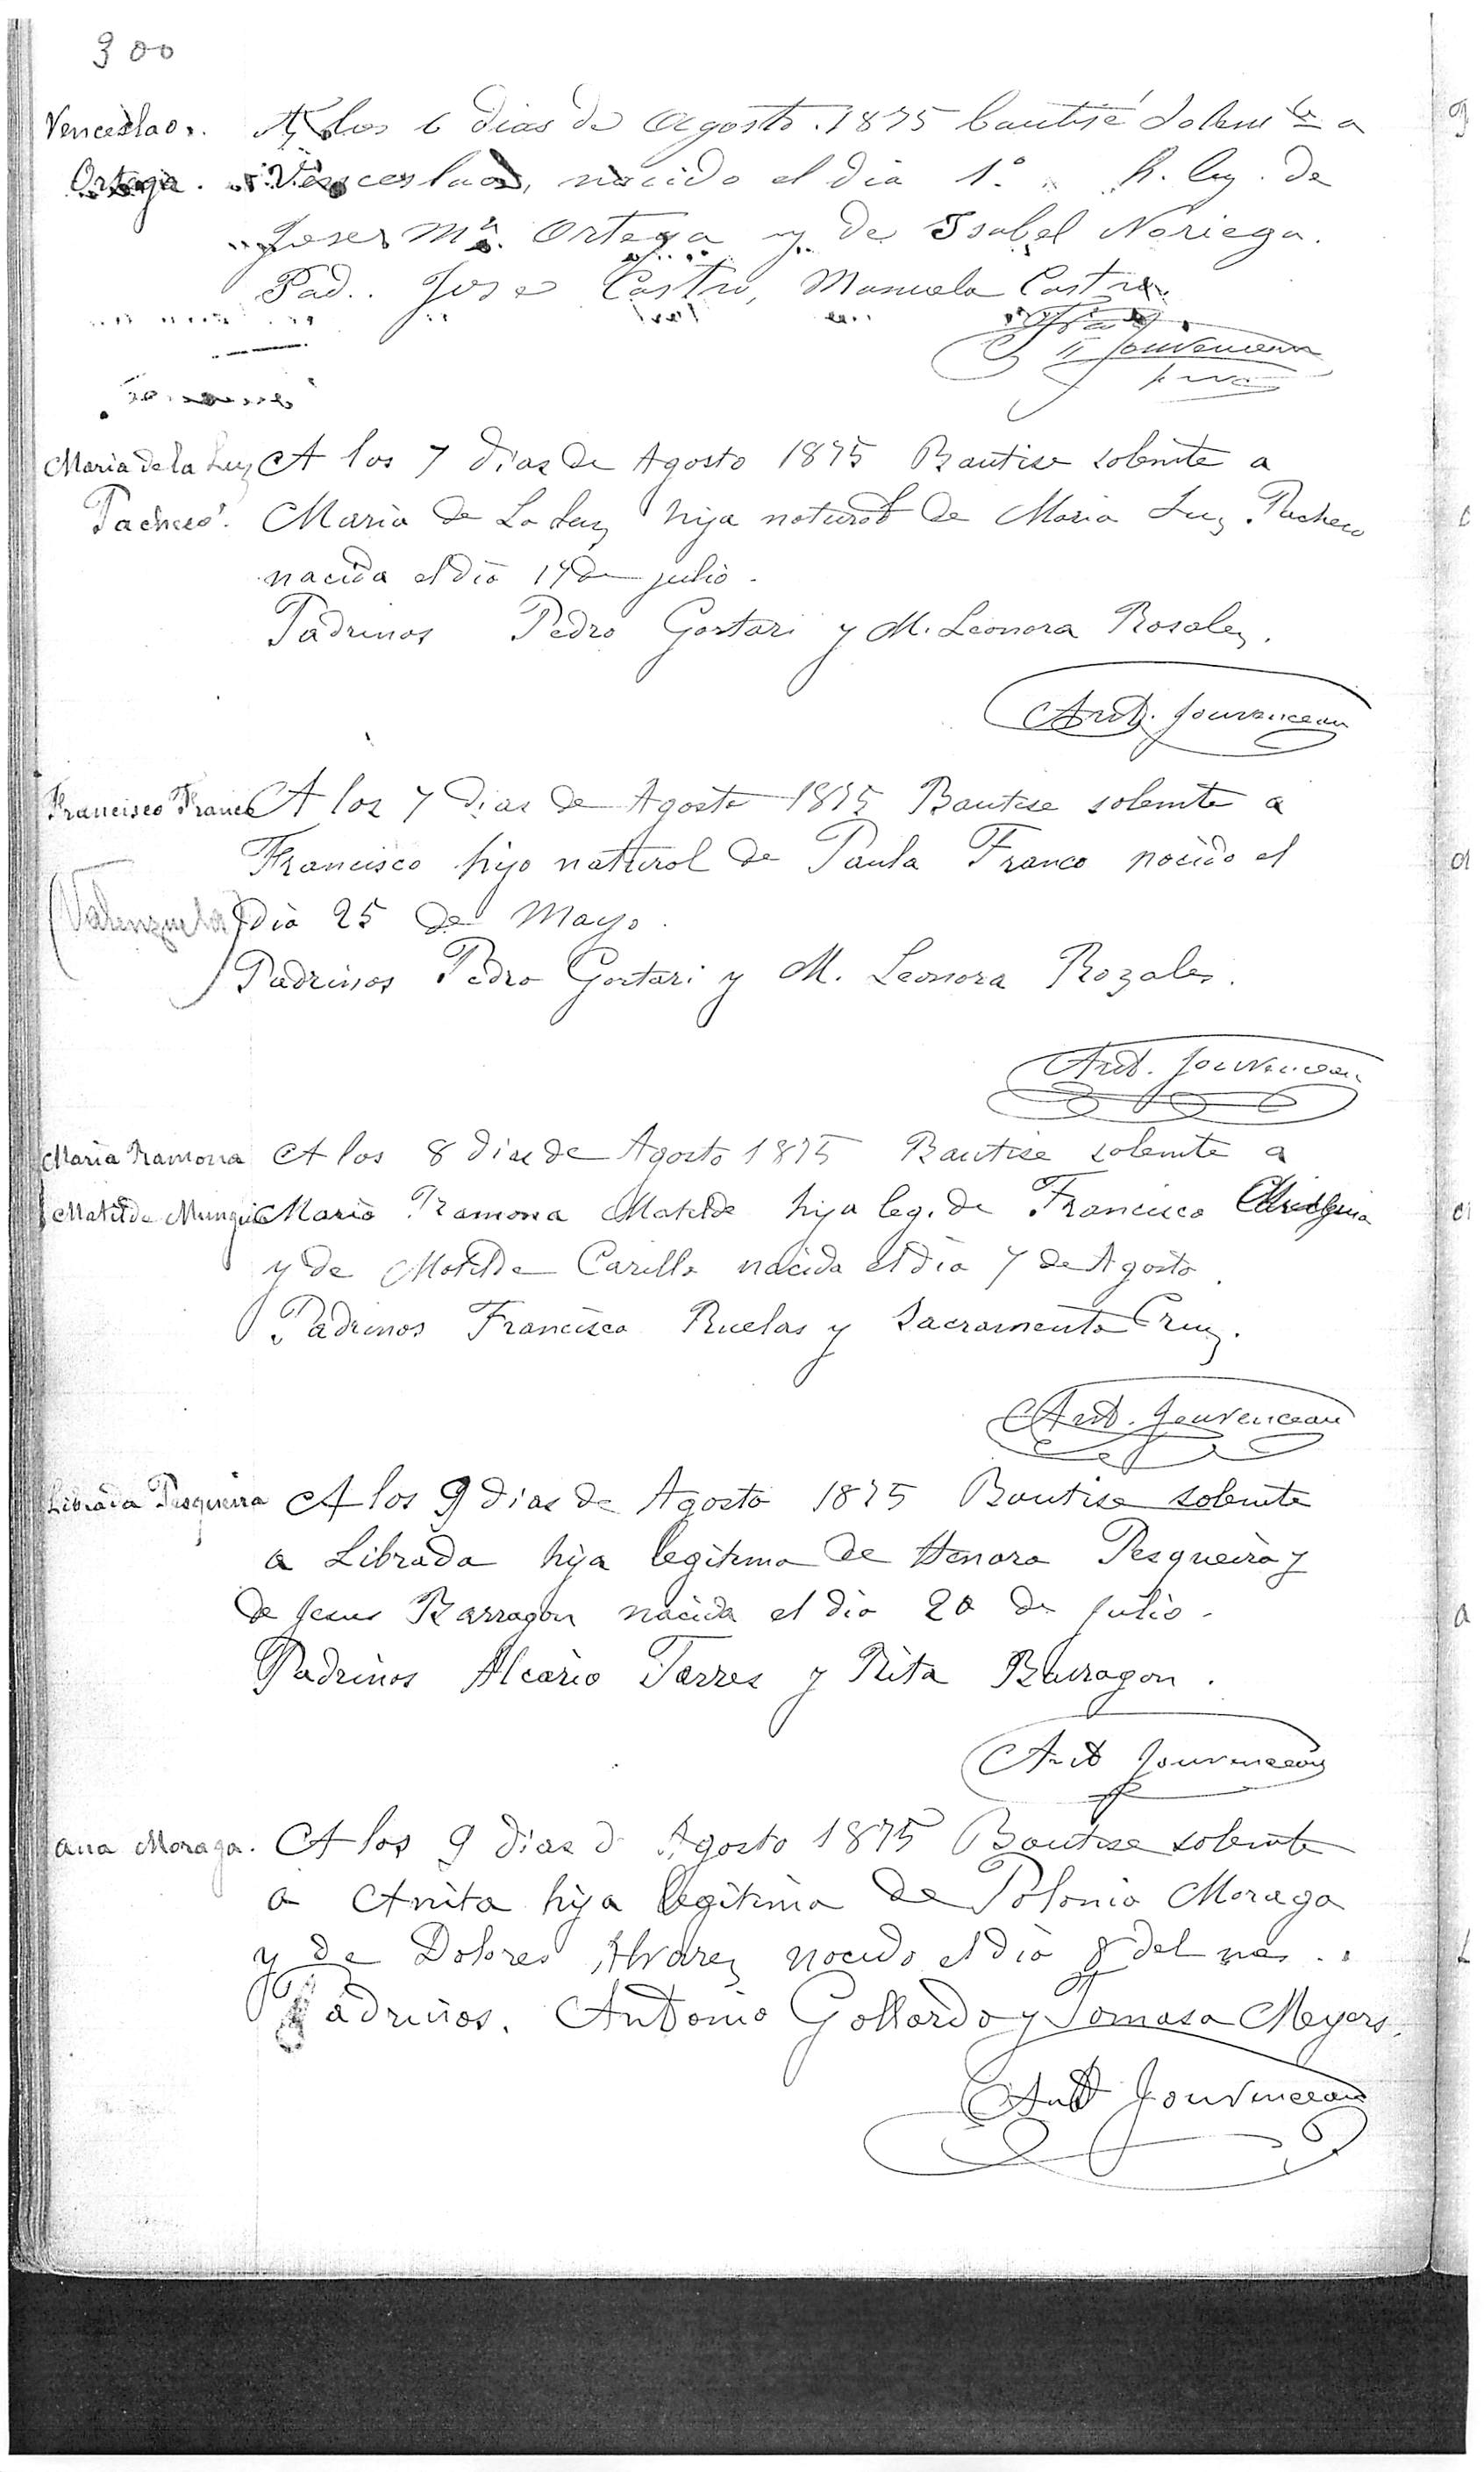 300
Venceslao.
Ortega.
A los 6 dias de Agosto. 1875 bautisé solemte a
Venceslao, nacido el dia 1º. h. leg. de
Jose Mª. Ortega y de Isabel Noriega.
Pad.. Jose Castro, Manuela Castro.
Jouvenceau
Maria de la Luz
Pacheco.
A los 7 dias de Agosto 1875 Bautise solemte a
Maria de La Luz hija natural de Maria Luz Pacheco
nacida el dia 17 de julio.
Padrinos Pedro Gortari y M. Leonora Rosales.
Ant. Jouvenceau
Francisco Franco
(Valenzuela)
A los 7 dias de Agosto 1875 Bautise solemte a
Francisco hijo natural de Paula Franco nacido el
dia 25 de Mayo.
Padrinos Pedro Gortari y M. Leonora Rozales.
Ant. Jouvenceau
Maria Ramona
Matilde Munguia
A los 8 dias de Agosto 1875 Bautise solemte a
Maria Ramona Matilde hija leg. de Francisco
y de Matilde Carillo nacida el dia 7 de Agosto.
Padrinos Francisco Ruelas y Sacramento Cruz.
Ant. Jouvenceau
Librada Pesqueira
A los 9 dias de Agosto 1875 Bautise solemte
a Librada hija legitima de Henara Pesqueira y
de Jesus Barragan nacida el dia 20 de Julio.
Padrinos Alcario Torres y Rita Barragan.
Ant Jouvenceau
Ana Moraga.
A los 9 dias d Agosto 1875 Bautise solemte
a Anita hija legitima de Polonio Moraga
y de Dolores Alvarez nacido el dia 8 del mes.
Padrinos. Antonio Gollardo y Tomasa Meyers.
Ant Jouvenceau